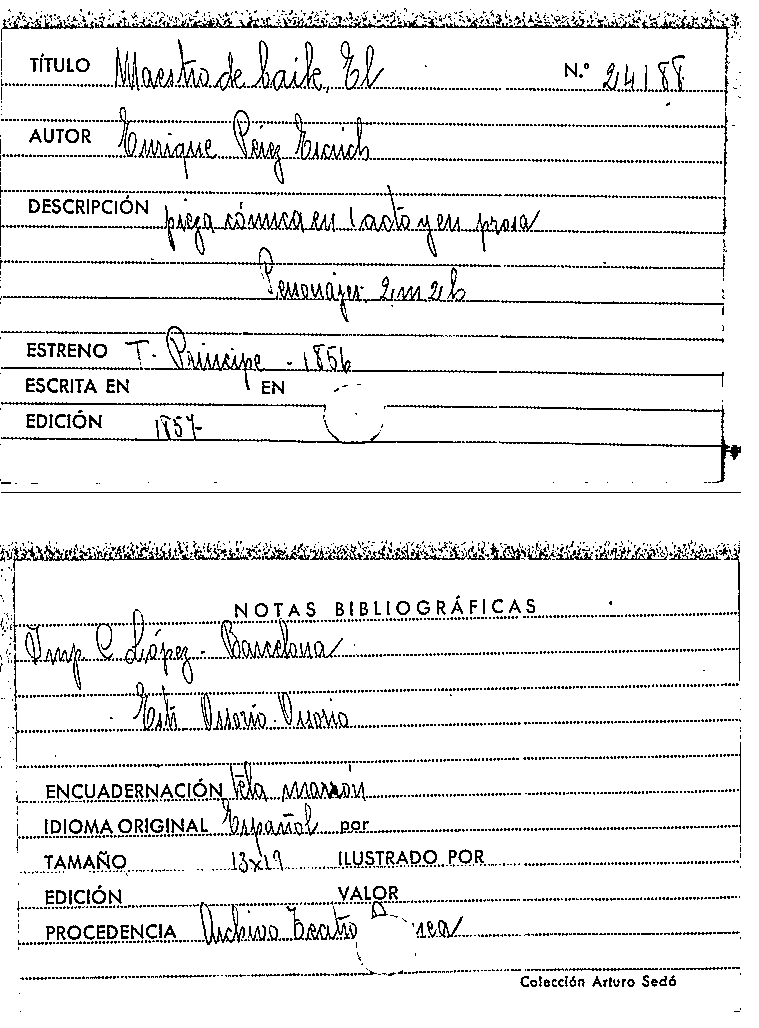 TÍTULO Maestro de baile, El N.º 24188
AUTOR Enrique Pérez Escrich
DESCRIPCIÓN pieza cómica en 1 acto y en prosa
Personajes 2m 2h
ESTRENO T. Príncipe - 1856
ESCRITA EN EN
EDICIÓN 1857
NOTAS BIBLIOGRÁFICAS
Imp C López. Barcelona
Ossorio. Ossorio
ENCUADERNACIÓN tela marrón
IDIOMA ORIGINAL Español por
TAMAÑO 13x19 ILUSTRADO POR
EDICIÓN VALOR
PROCEDENCIA Archivo Teatro
Colección Arturo Sedó